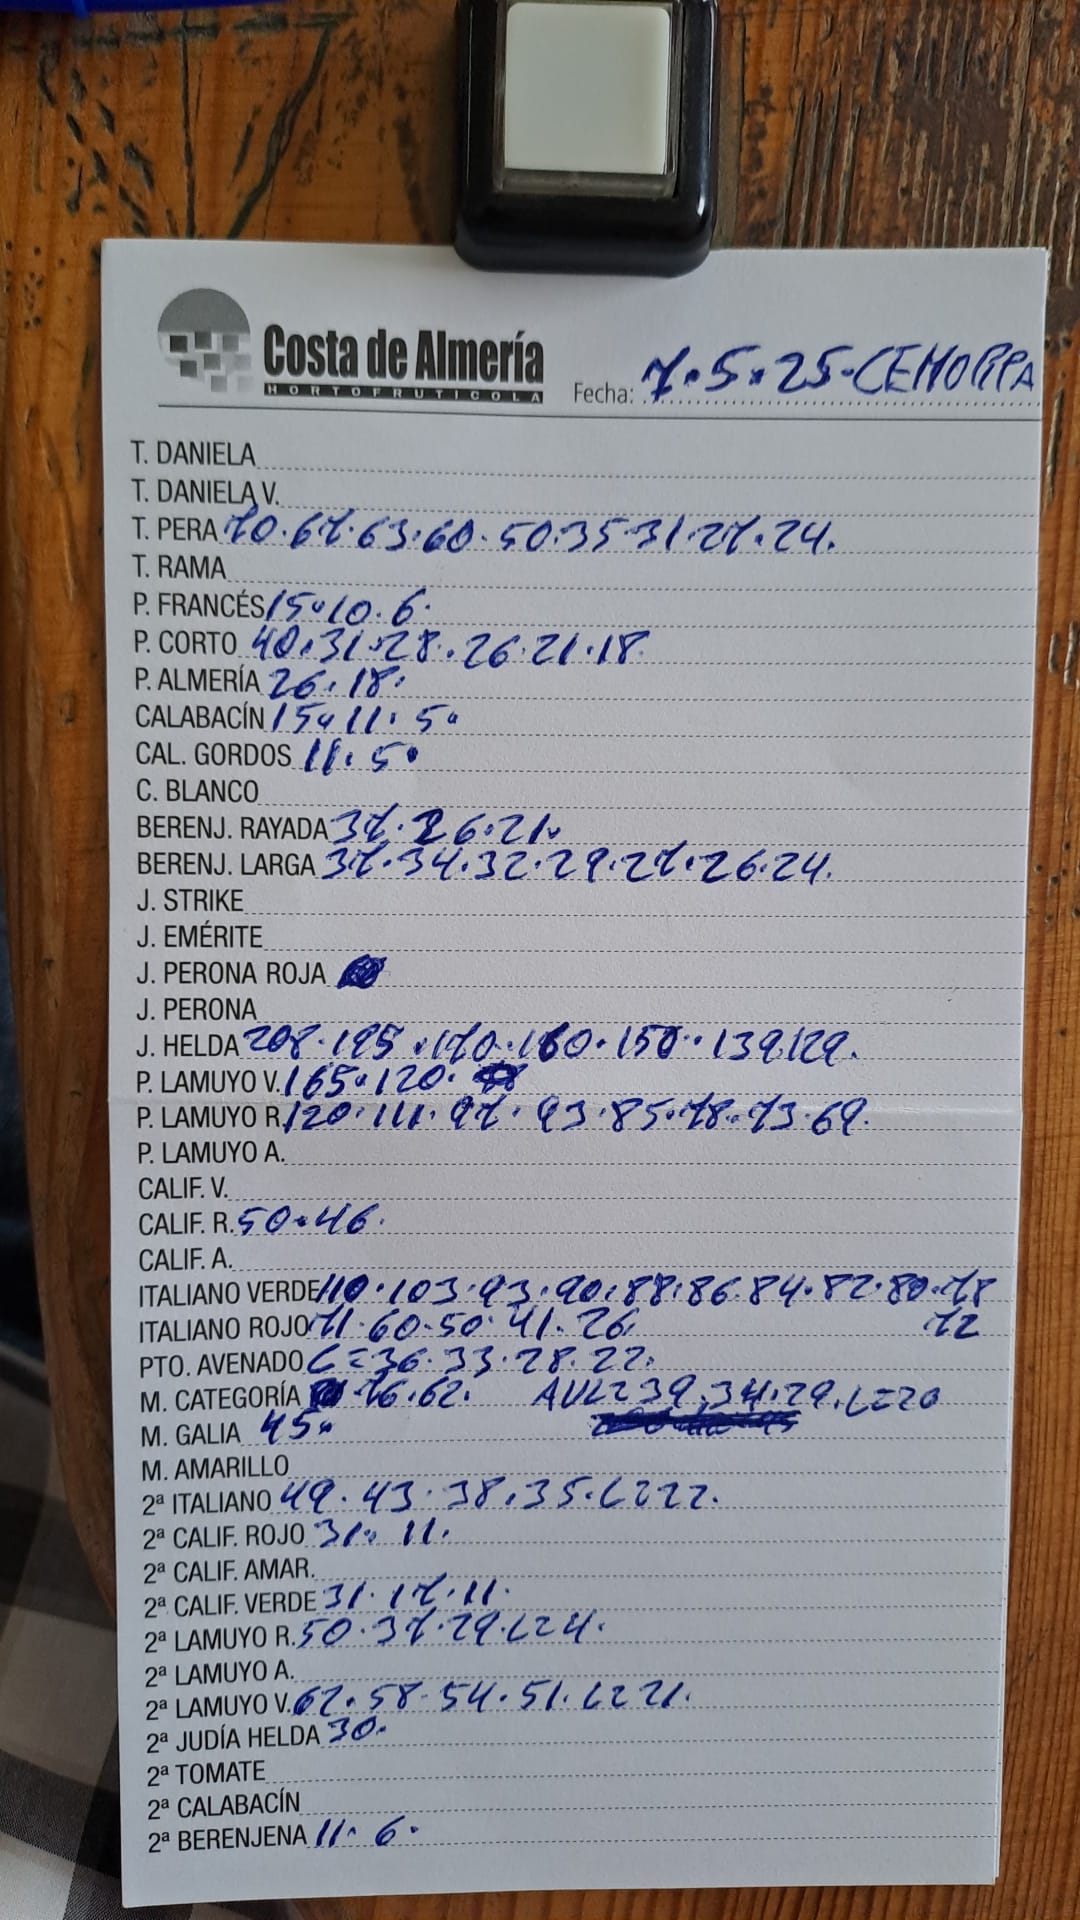 Costa de Almería
HORTOFRUTICOLA
Fecha: 7.5.25-CEHORPA
T. DANIELA
T. DANIELA V.
T. PERA 70.67.63.60.50.35.31.27.24.
T. RAMA
P. FRANCÉS 15.10.6.
P. CORTO 40.31.28.26.21.18.
P. ALMERÍA 26.18.
CALABACÍN 15.11.5.
CAL. GORDOS 11.5.
C. BLANCO
BERENJ. RAYADA 37.26.21.
BERENJ. LARGA 37.34.32.29.27.26.24.
J. STRIKE
J. EMÉRITE
J. PERONA ROJA
J. PERONA
J. HELDA 208.195.170.160.150.139.129.
P. LAMUYO V. 165.120.
P. LAMUYO R. 120.111.97.93.85.78.73.69.
P. LAMUYO A.
CALIF. V.
CALIF. R. 50.46.
CALIF. A.
ITALIANO VERDE 110.103.93.90.88.86.84.82.80.78
ITALIANO ROJO 71.60.50.41.26. 72
PTO. AVENADO C=36.33.28.22.
M. CATEGORÍA 76.62. AVL=39.34.29.L=20
M. GALIA 45.
M. AMARILLO
2ª ITALIANO 49.43.38.35.L=22.
2ª CALIF. ROJO 31.11.
2ª CALIF. AMAR.
2ª CALIF. VERDE 31.17.11.
2ª LAMUYO R. 50.37.29.L=24.
2ª LAMUYO A.
2ª LAMUYO V. 62.58.54.51.L=21.
2ª JUDÍA HELDA 30.
2ª TOMATE
2ª CALABACÍN
2ª BERENJENA 11.6.